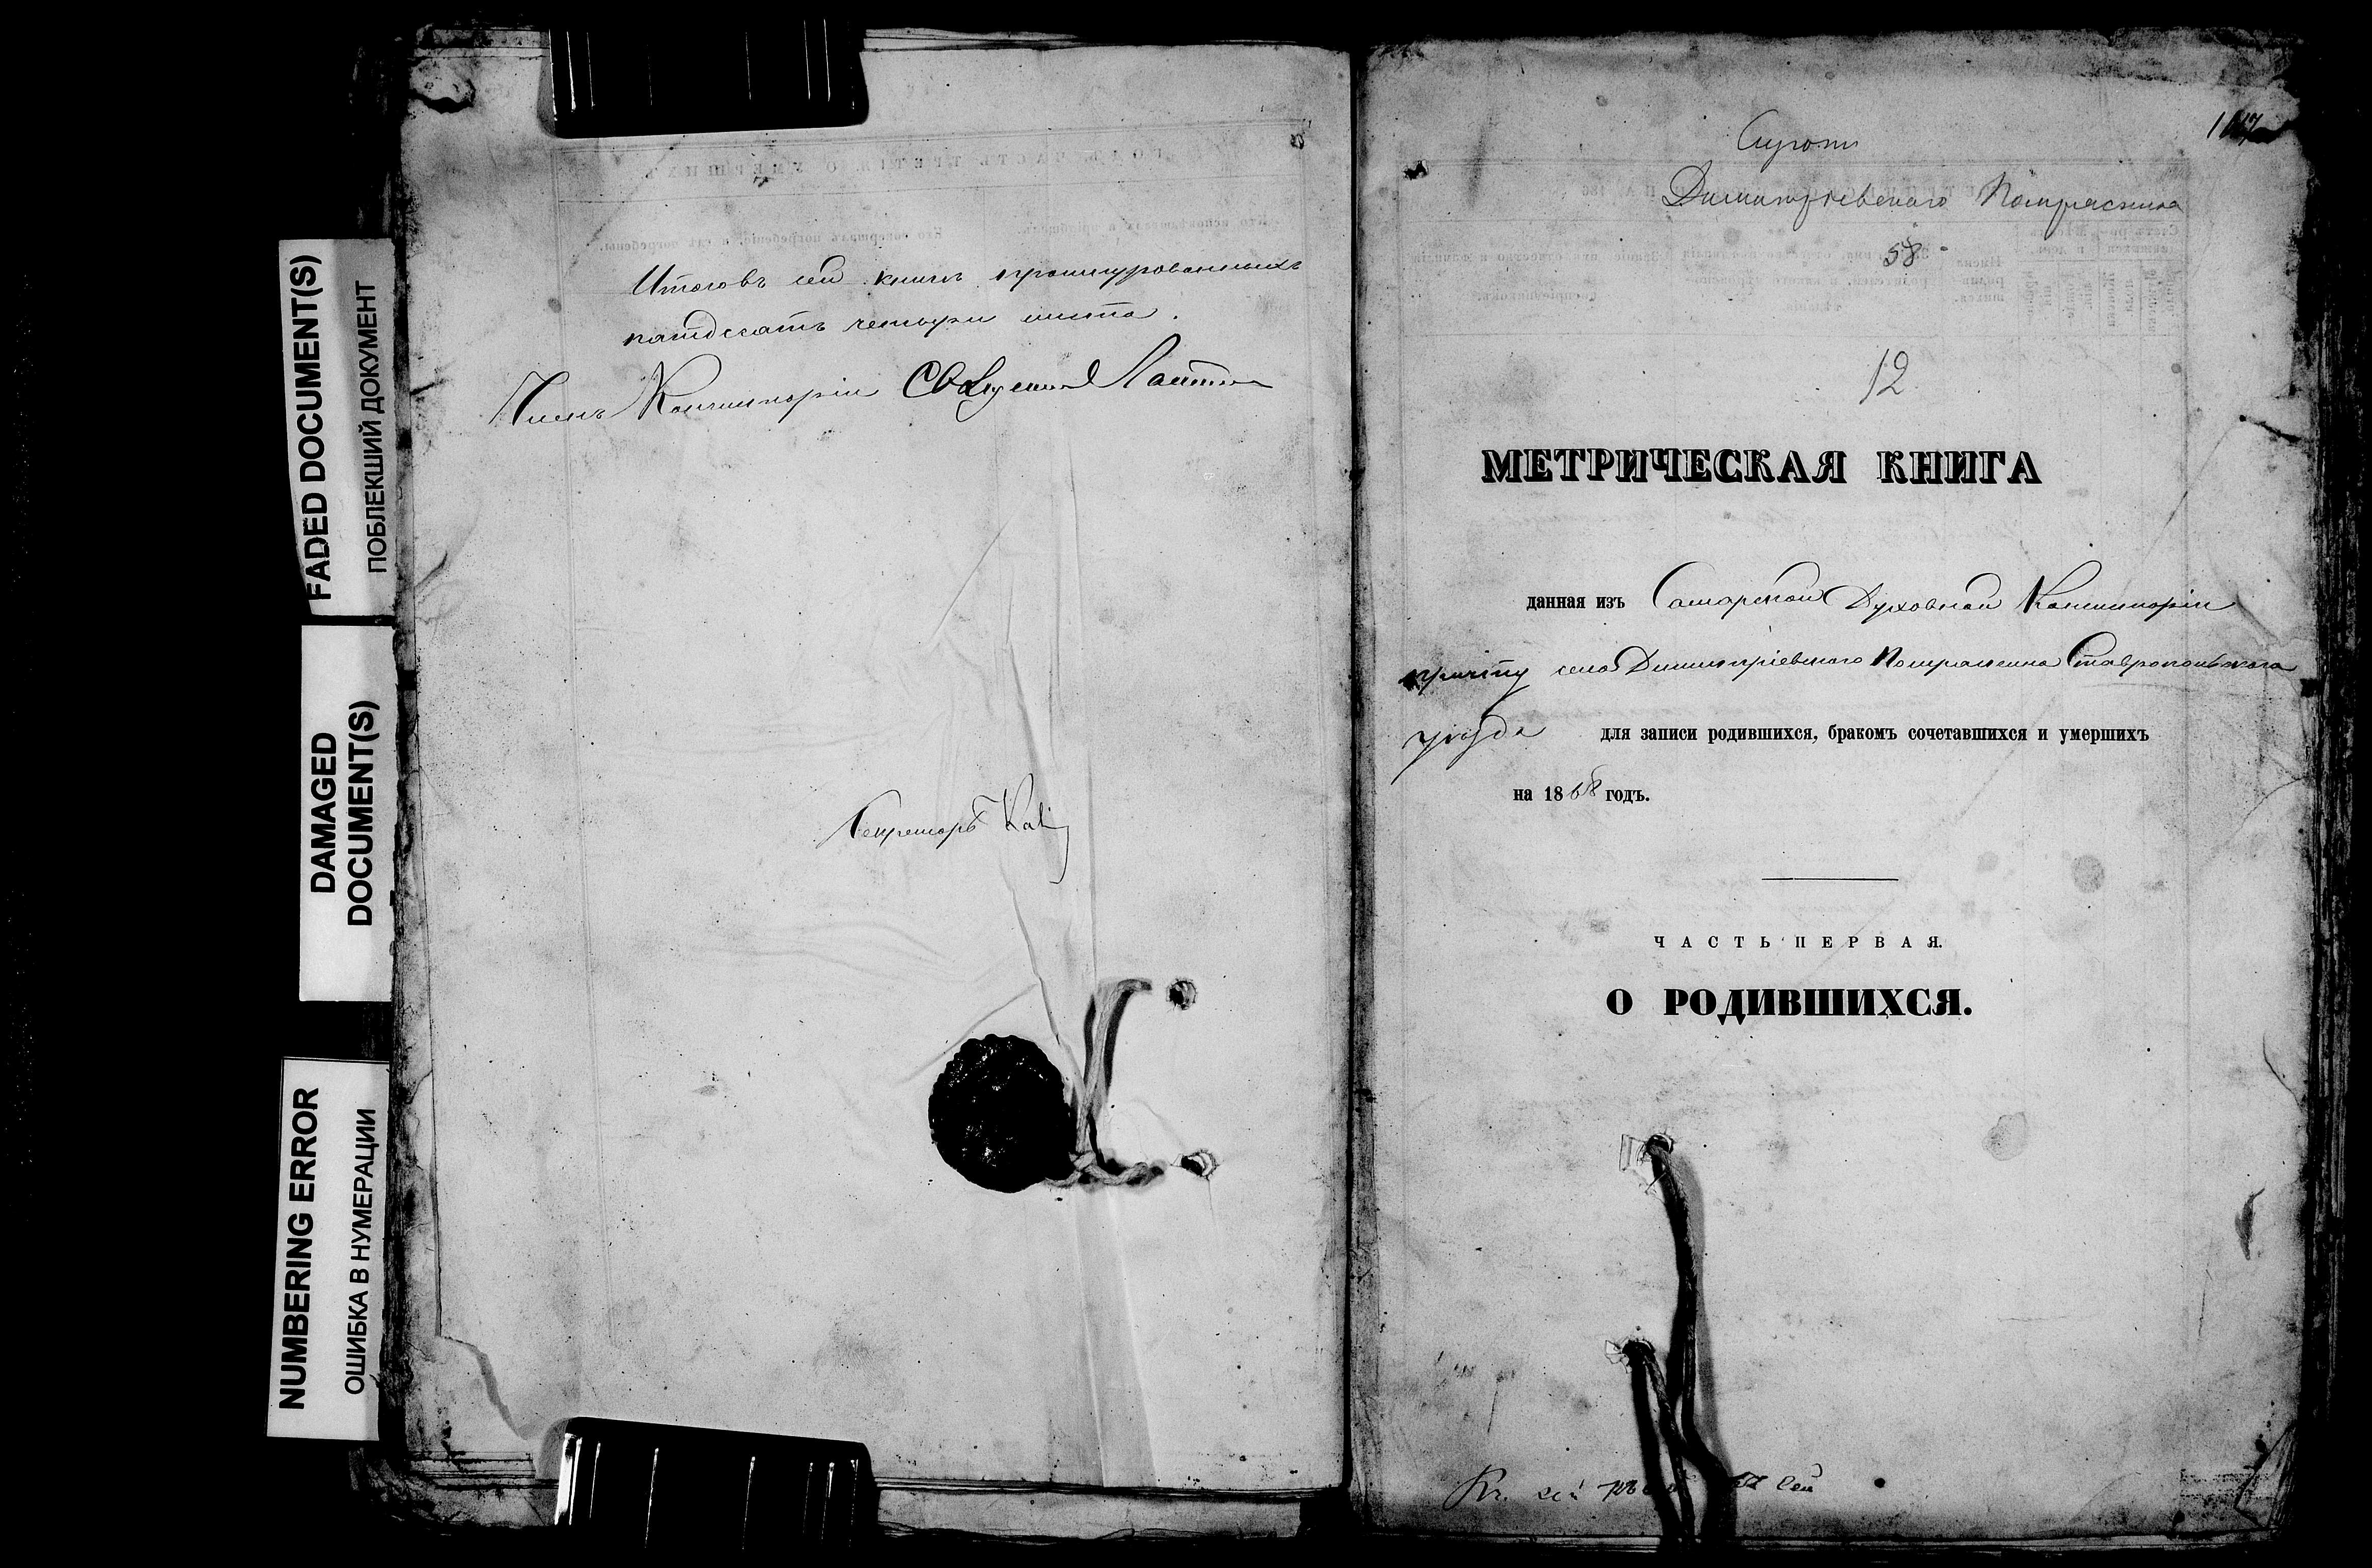 FADED DOCUMENT(S)
ПОБЛЕКШИЙ ДОКУМЕНТ
DAMAGED
DOCUMENT(S)
NUMBERING ERROR
ОШИБКА В НУМЕРАЦИИ
Итого въ сей книгѣ прошнурованныхъ
пятдесятъ четыри листа.
Членъ Консисторіи Священникъ
Секретарь
Димитріевскаго
58
12
МЕТРИЧЕСКАЯ КНИГА
данная изъ Самарской Духовной Консисторіи
причту села Димитріевскаго Помряскина Ставропольскаго
уѣзда для записи родившихся, бракомъ сочетавшихся и умершихъ
на 1868 годъ.
ЧАСТЬ ПЕРВАЯ.
О РОДИВШИХСЯ.